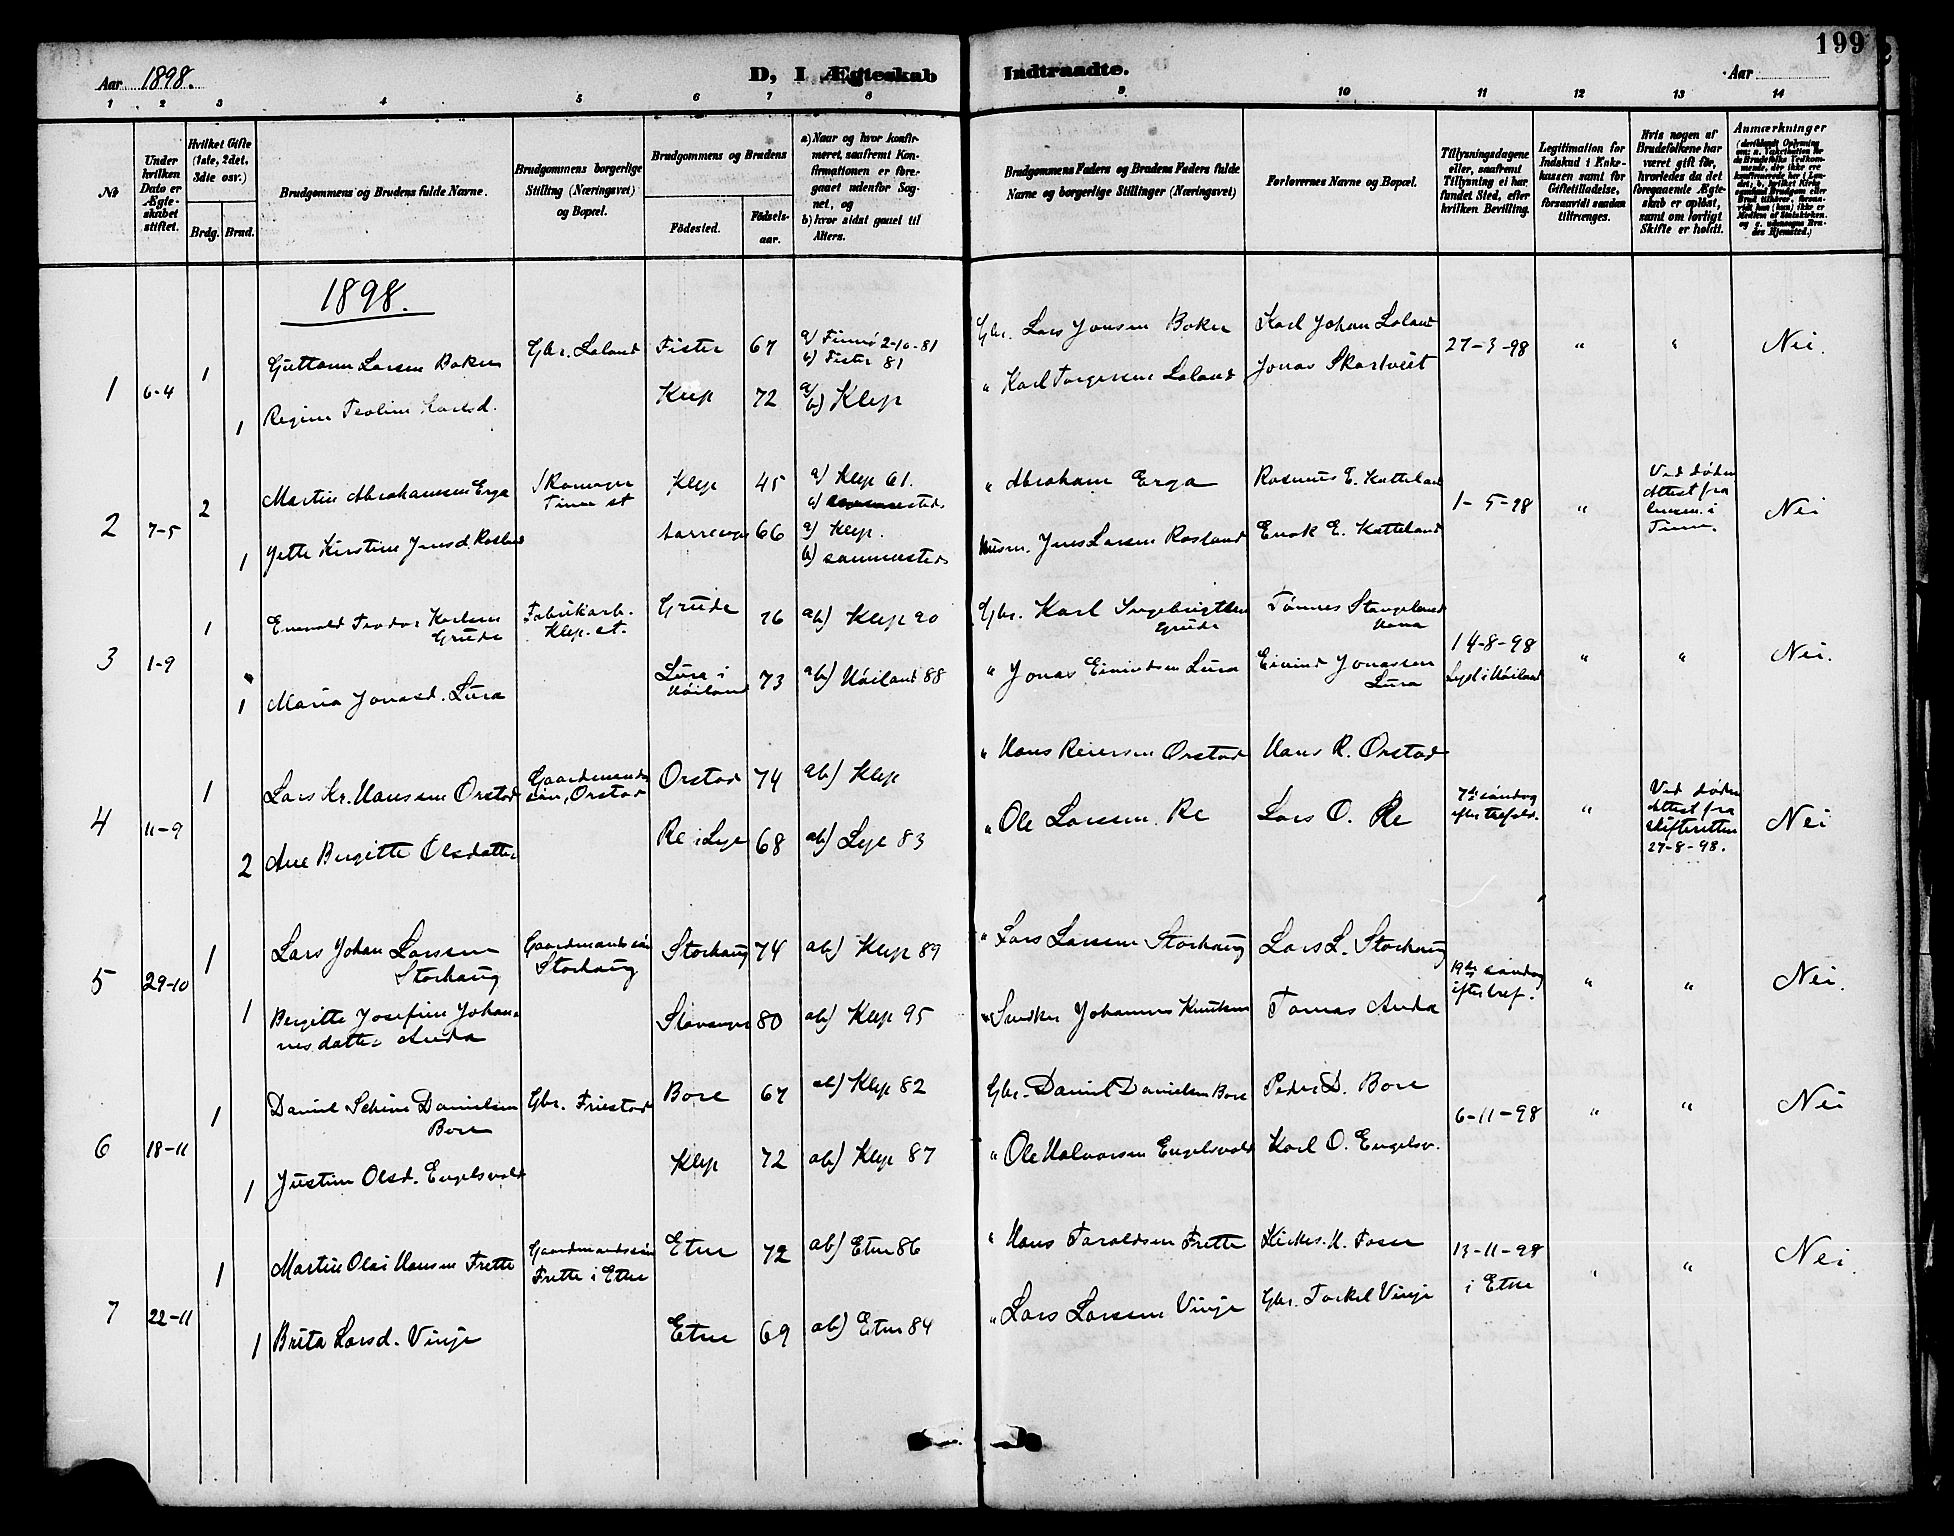 199
Aar 1898.
D, I Ægteskab Indtraadte.
Aar
1 2 3 4 5 6 7 8 9 10 11 12 13 14
No
Under hvilken Dato er Ægteskabet stiftet.
Hvilket Gifte (1ste, 2det, 3die osv.)
Brdg. Brud.
Brudgommens og Brudens fulde Navne.
Brudgommens borgerlige Stilling (Næringsvei) og Bopæl.
Brudgommens og Brudens
Fødested. Fødselsaar.
a) Naar og hvor konfirmeret, saafremt Konfirmationen er foregaaet udenfor Sognet, og
b) hvor sidst gaaet til Alters.
Brudgommens Faders og Brudens Faders fulde Navne og borgerlige Stillinger (Næringsvei)
Forlovernes Navne og Bopæl.
Tillysningsdagene eller, saafremt Tillysning ei har fundet Sted, efter hvilken Bevilling.
Legitimation for Indskud i Enkekassen samt for Giftetilladelse, forsaavidt saadan tiltrænges.
Hvis nogen af Brudefolkene har været gift før, hvorledes da det foregaaende Ægteskab er opløst, samt om lovligt Skifte er holdt.
Anmærkninger
1898.
1 6-4 1 Guttorm Larsen Boken Gbr. Laland Fister 67 a) Finnø 2-10-81 b) Fister 81 Gbr. Lars Jonsen Boken Karl Johan Laland 27-3-98 " " Nei.
1 Regine Teoline Karlsd. Klep 72 a/b) Klep " Karl Torgersen Laland Jonas Skartveit
2 7-5 2 Martin Abrahamsen Erga Skomager Time st Klep 45 a) Klep 61. b) sammesteds " Abraham Erga Rasmus E. Katteland 1-5-98 " Ved døden Attest fra lensm. i Time. Nei
1 Jette Kirstine Jensd. Rosland 66 a) Klep. b) sammesteds Husm. Jens Larsen Rosland Enok E. Katteland
3 1-9 1 Enevald Teodor Karlsen Grude Fabrikarb. Klep. st. Grude 76 ab) Klep 90 Gbr. Karl Ingebrigtsen Grude Tønnes Stangeland 14-8-98 Lyst i Høiland " " Nei.
" 1 Maria Jonasd. Lura Lura i Høiland 73 ab) Høiland 88 " Jonas Eivindsen Lura Eivind Jonassen Lura
4 11-9 1 Lars Kr. Hansen Orstad Gaardmands søn, Orstad Orstad 74 ab) Klep " Hans Reiersen Orstad Hans R. Orstad 7de søndag efter trefold. " Ved døden Attest fra skifteretten 27-8-98. Nei
2 Ane Birgitte Olsdatter Re i Lye 68 ab) Lye 83 " Ole Larsen Re Lars O. Re
5 29-10 1 Lars Johan Larsen Storhaug Gaardmandssøn Storhaug Storhaug 74 ab) Klep 89 " Lars Larsen Storhaug Lars L. Storhaug 19de søndag efter tref. " " Nei.
1 Bergitte Josefine Johannesdatter Anda Stavanger 80 ab) Klep 95 Snedker Johannes Knutsen Tomas Anda
6 18-11 1 Daniel Sekine Danielsen Bore Gbr. Friestad Bore 67 ab) Klep 82 Gbr. Daniel Danielsen Bore Peder D. Bore 6-11-98 " " Nei
1 Justine Olsd. Engelsvold Klep 72 ab) Klep 87 " Ole Halvorsen Engelsvold Karl O. Engelsv.
7 22-11 1 Martin Olai Hansen Frette Gaardmandssøn Frette i Etne Etne 72 ab) Etne 86 " Hans Taraldsen Frette Kirkes. H. Fosse 13-11-98 i Etne " " Nei.
1 Brita Larsd. Vinje Etne 69 ab) Etne 84 " Lars Larsen Vinje Gbr. Torkel Vinje